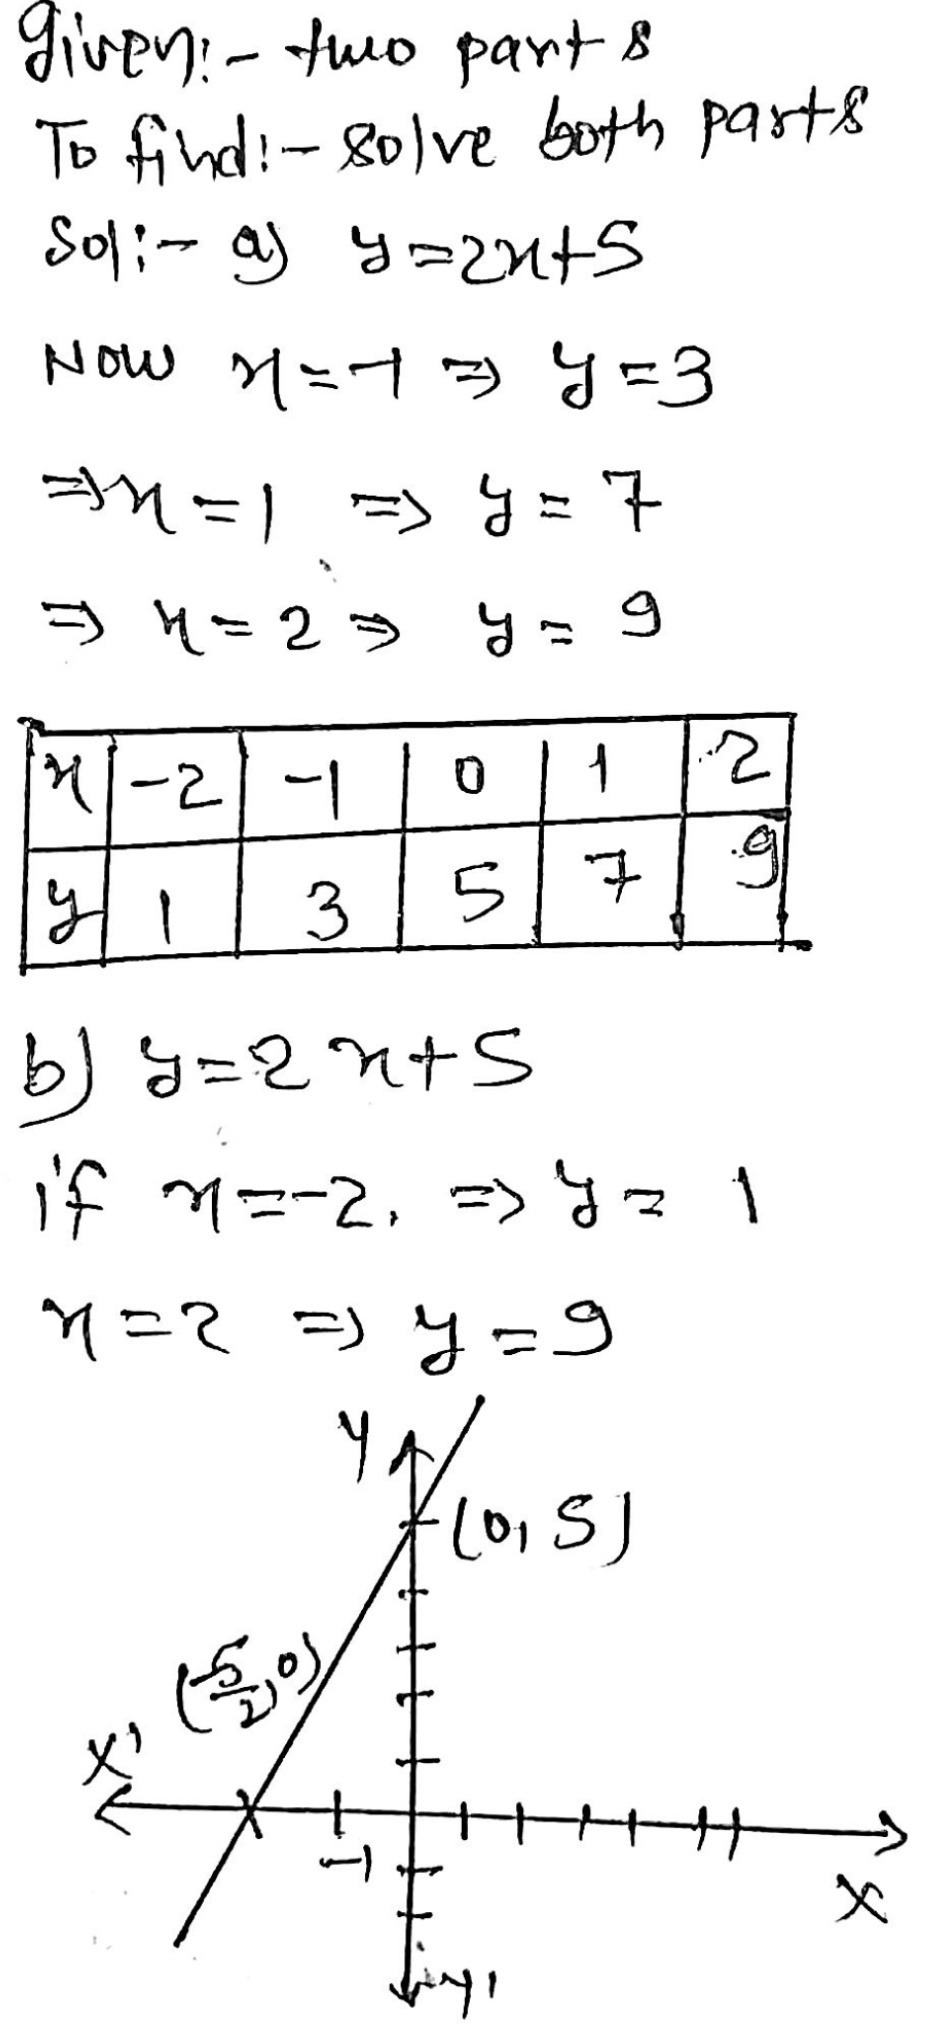 Given:- two parts
To find:- solve both parts
Sol:- a) y=2x+5
Now x=-1 ⇒ y=3
⇒x=1 ⇒ y=7
⇒ x=2 ⇒ y=9
x -2 -1 0 1 2
y 1 3 5 7 9
b) y=2x+5
if x=-2, ⇒ y=1
x=2 ⇒ y=9
Y
(0,5)
(-5/2,0)
X'
-1
X
Y'